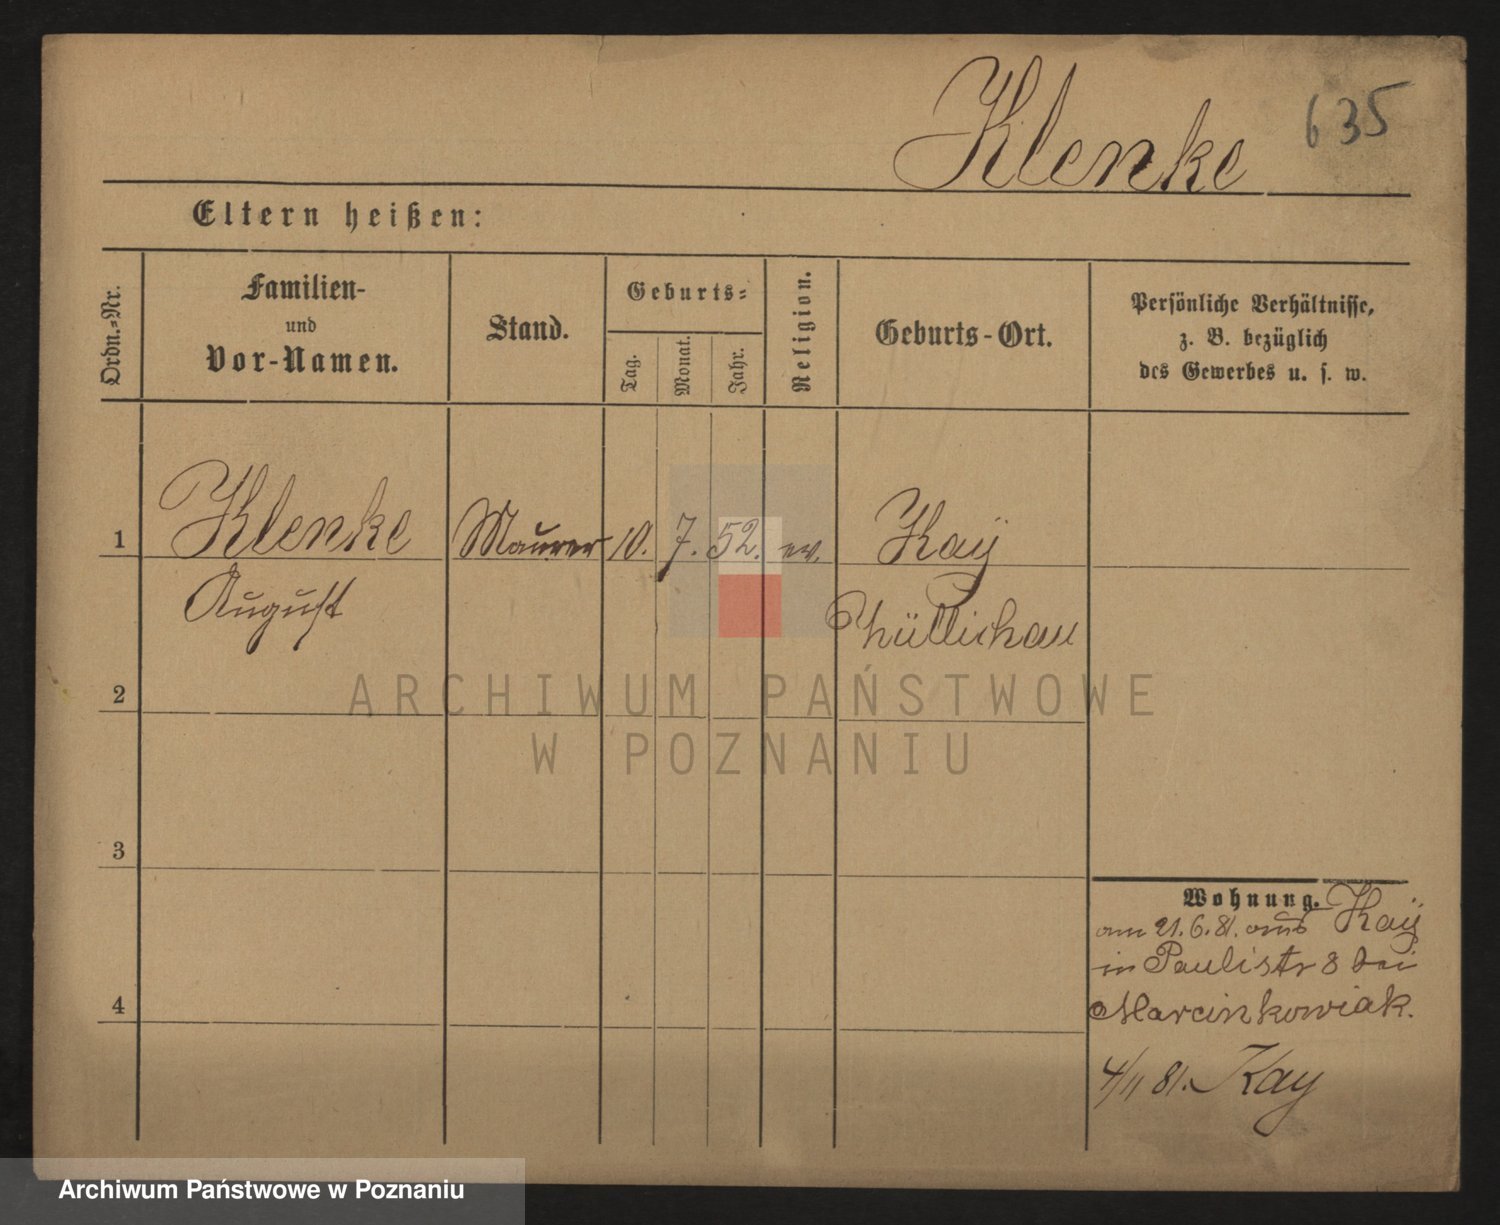 Klenke 635
Eltern heißen:
Ordn.-Nr.
Familien-
und
Vor-Namen.
Stand.
Geburts-
Tag.
Monat.
Jahr.
Religion.
Geburts-Ort.
Persönliche Verhältnisse,
z. B. bezüglich
des Gewerbes u. s. w.
1 Klenke Maurer 10. 7. 52. ev. Kay
August Züllichau
2
ARCHIWUM PAŃSTWOWE
W POZNANIU
3
Wohnung.
am 21.6.81. aus Kay
in Paulistr 8 bei
Marcinkowiak.
4
4/11 81. Kay
Archiwum Państwowe w Poznaniu